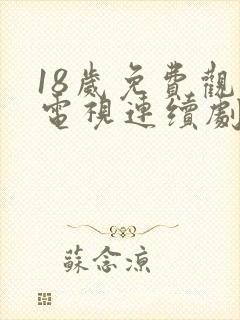 18歲免費觀
電視連續劇
蘇念涼